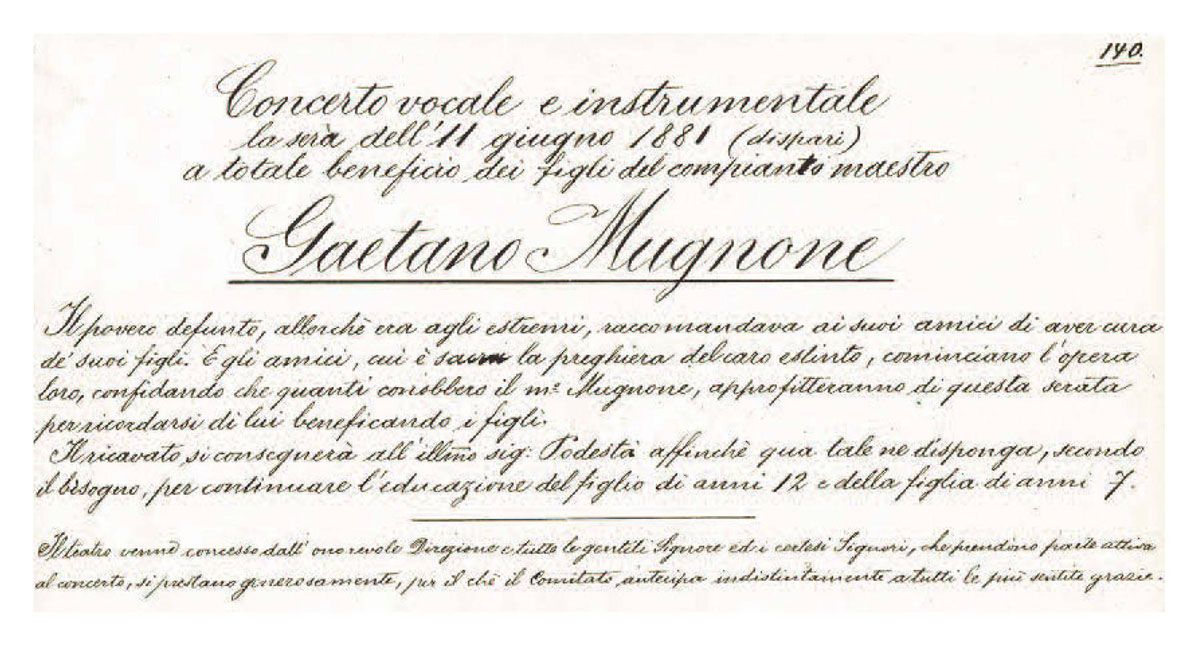 140.
Concerto vocale e instrumentale
la serà dell'11 giugno 1881 (dispari)
a totale beneficio dei figli del compianto maestro
Gaetano Mugnone
Il povero defunto, allorchè era agli estremi, raccomandava ai suoi amici di aver cura
de' suoi figli. E gli amici, cui è sacra la preghiera del caro estinto, cominciano l'opera
loro, confidando che quanti conobbero il mº Mugnone, approfitteranno di questa serata
per ricordarsi di lui beneficando i figli.
Il ricavato si consegnerà all'illmo sig: Podestà affinchè qua tale ne disponga, secondo
il bisogno, per continuare l'educazione del figlio di anni 12 e della figlia di anni 7.
Il teatro venne concesso dall'onorevole Direzione e tutte le gentili Signore ed i cortesi Signori, che prendono parte attiva
al concerto, si prestano generosamente, per il chè il Comitato anticipa indistintamente a tutti le più sentite grazie.